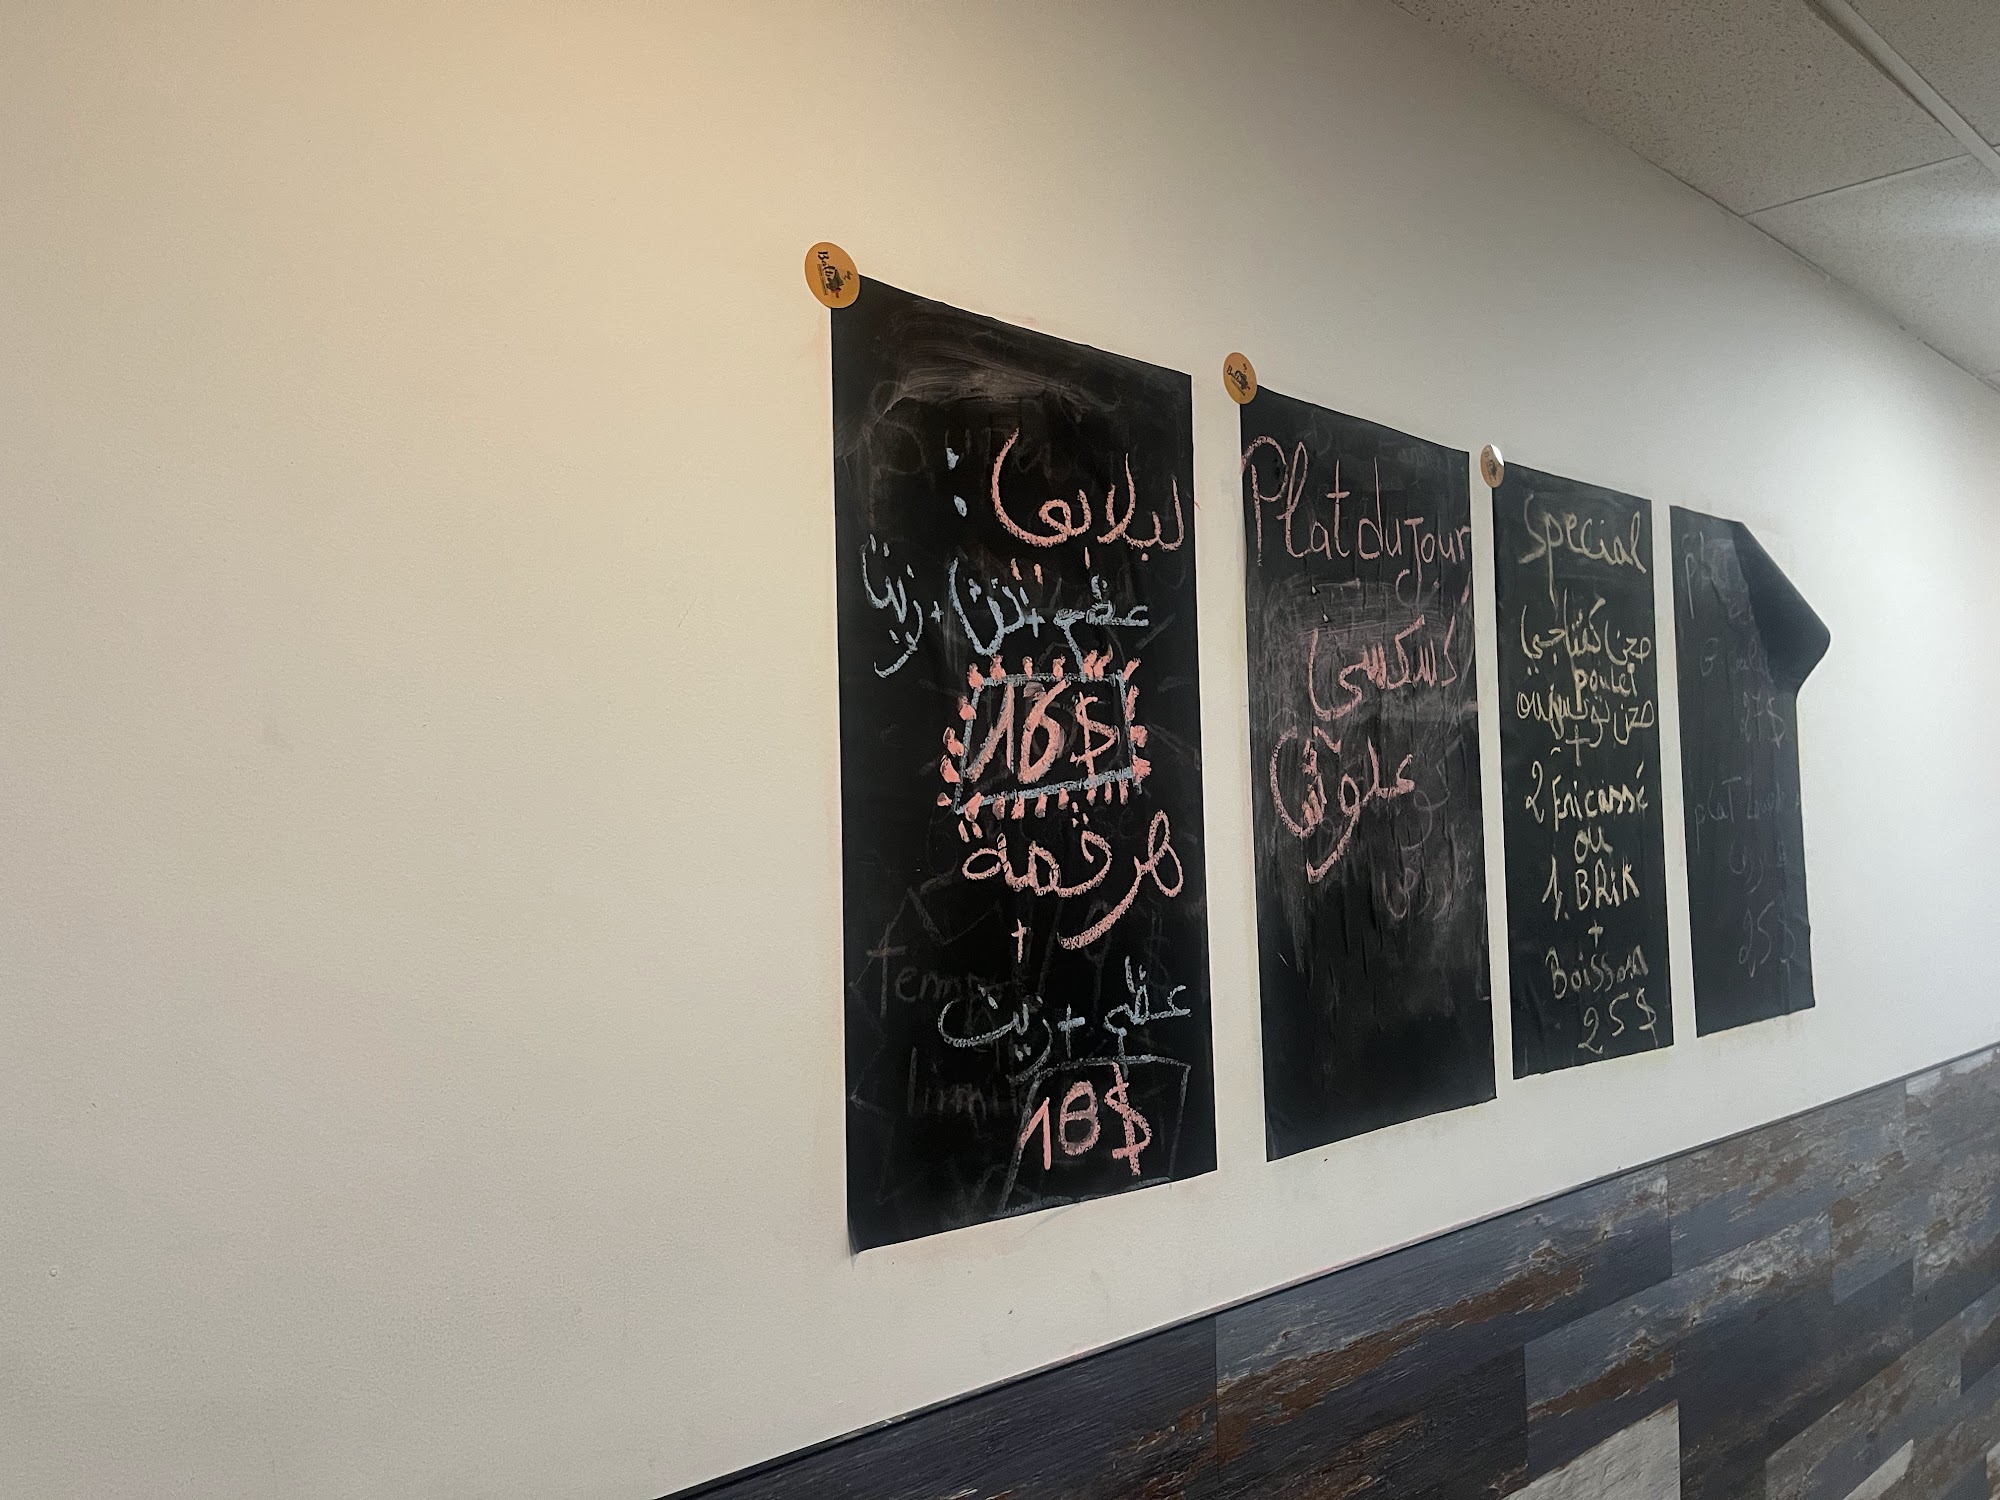 لبلابي :
عضم + تن + زيت
16$
هرڨمة
+
عضم + زيت
18$
Plat du Jour
كسكسي
علوش
Special
صحن كفتاجي
poulet
ou صحن تونسي
+
2 Fricassé
ou
1. BRIK
+
Boisson
25$
27$
plat
25$